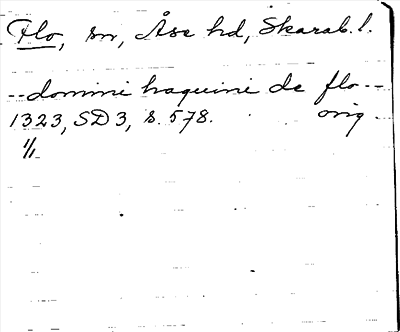 Flo, sn, Åse hd, Skarab. l.
-- domini haquini de flo --
1323, SD 3, s. 578. orig.
1/1